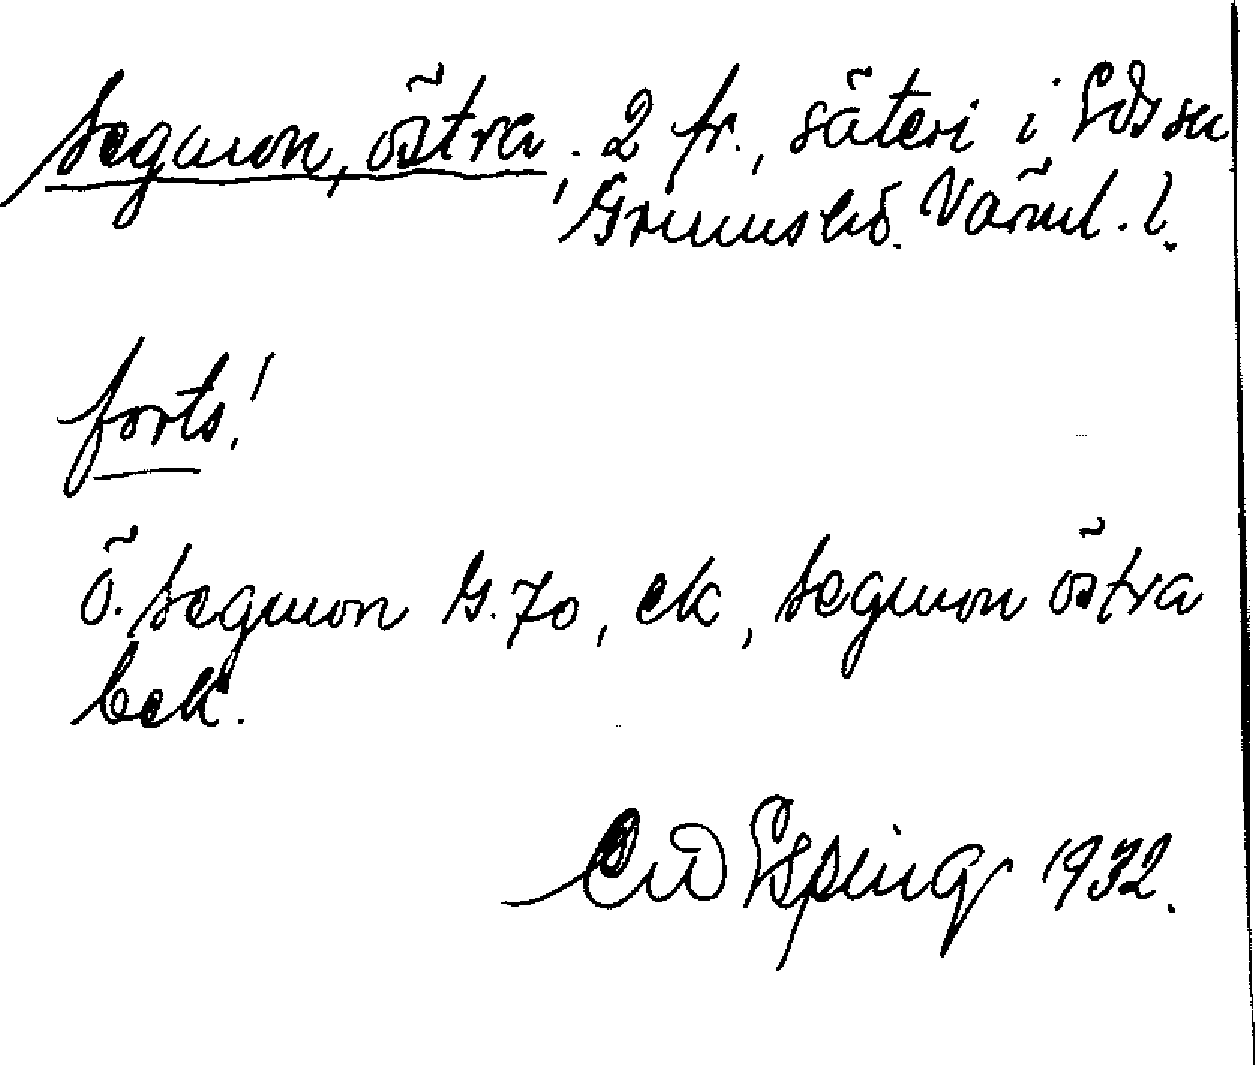 Segmon, östra, 2 fr., säteri i Eds sn
Grums hd. Värml. l.
forts!
Ö. Segmon G. 70, ek, Segmon östra
bek.
Cid Esping 1932.